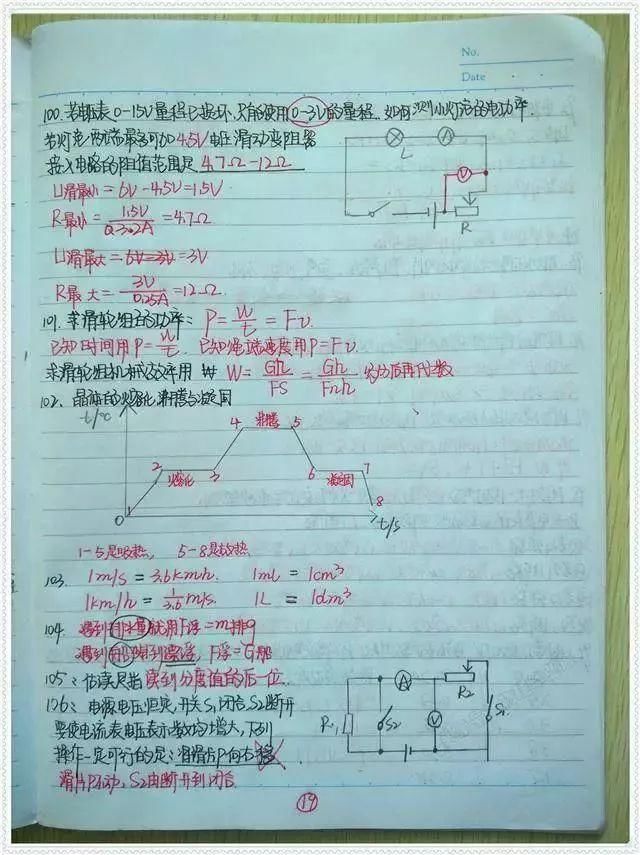 No.
Date
100. 若电压表0-15V量程已损坏，只能使用0~3V的量程.. 如何测小灯泡的电功率.
若灯泡两端最多可加4.5V电压 滑动变阻器
接入电路的阻值范围是 4.7Ω-12Ω
U滑最小=6V-4.5V=1.5V
R最小= 1.5V/0.32A =4.7Ω
U滑最大=6V-3V=3V
R最大= 3V/0.25A =12Ω
L
A
V
R
101. 求滑轮组的功率: P=W/t=Fv.
已知时间用P=W/t. 已知绳端速度用P=Fv.
求滑轮组机械效率用 W= Gh/FS = Gh/Fnh 约分后再代数
102、晶体的熔化、沸腾与凝固
t/℃
4 沸腾 5
2 熔化 3
6 凝固 7
8
0 1
t/s
1-5是吸热， 5-8是放热
103. 1m/s=3.6km/h. 1mL=1cm³
1km/h=1/3.6 m/s. 1L=1dm³
104. 遇到排水量就用F浮=m排g
遇到船就想到漂浮，F浮=G船
105、估读是指读到分度值的后一位.
106、电源电压恒定，开关S₁闭合S₂断开
要使电流表电压表示数均增大，下列
操作一定可行的是: 滑片P向右移
滑片P不动，S₂由断开到闭合.
A
R₂
R₁
S₂
V
S₁
19